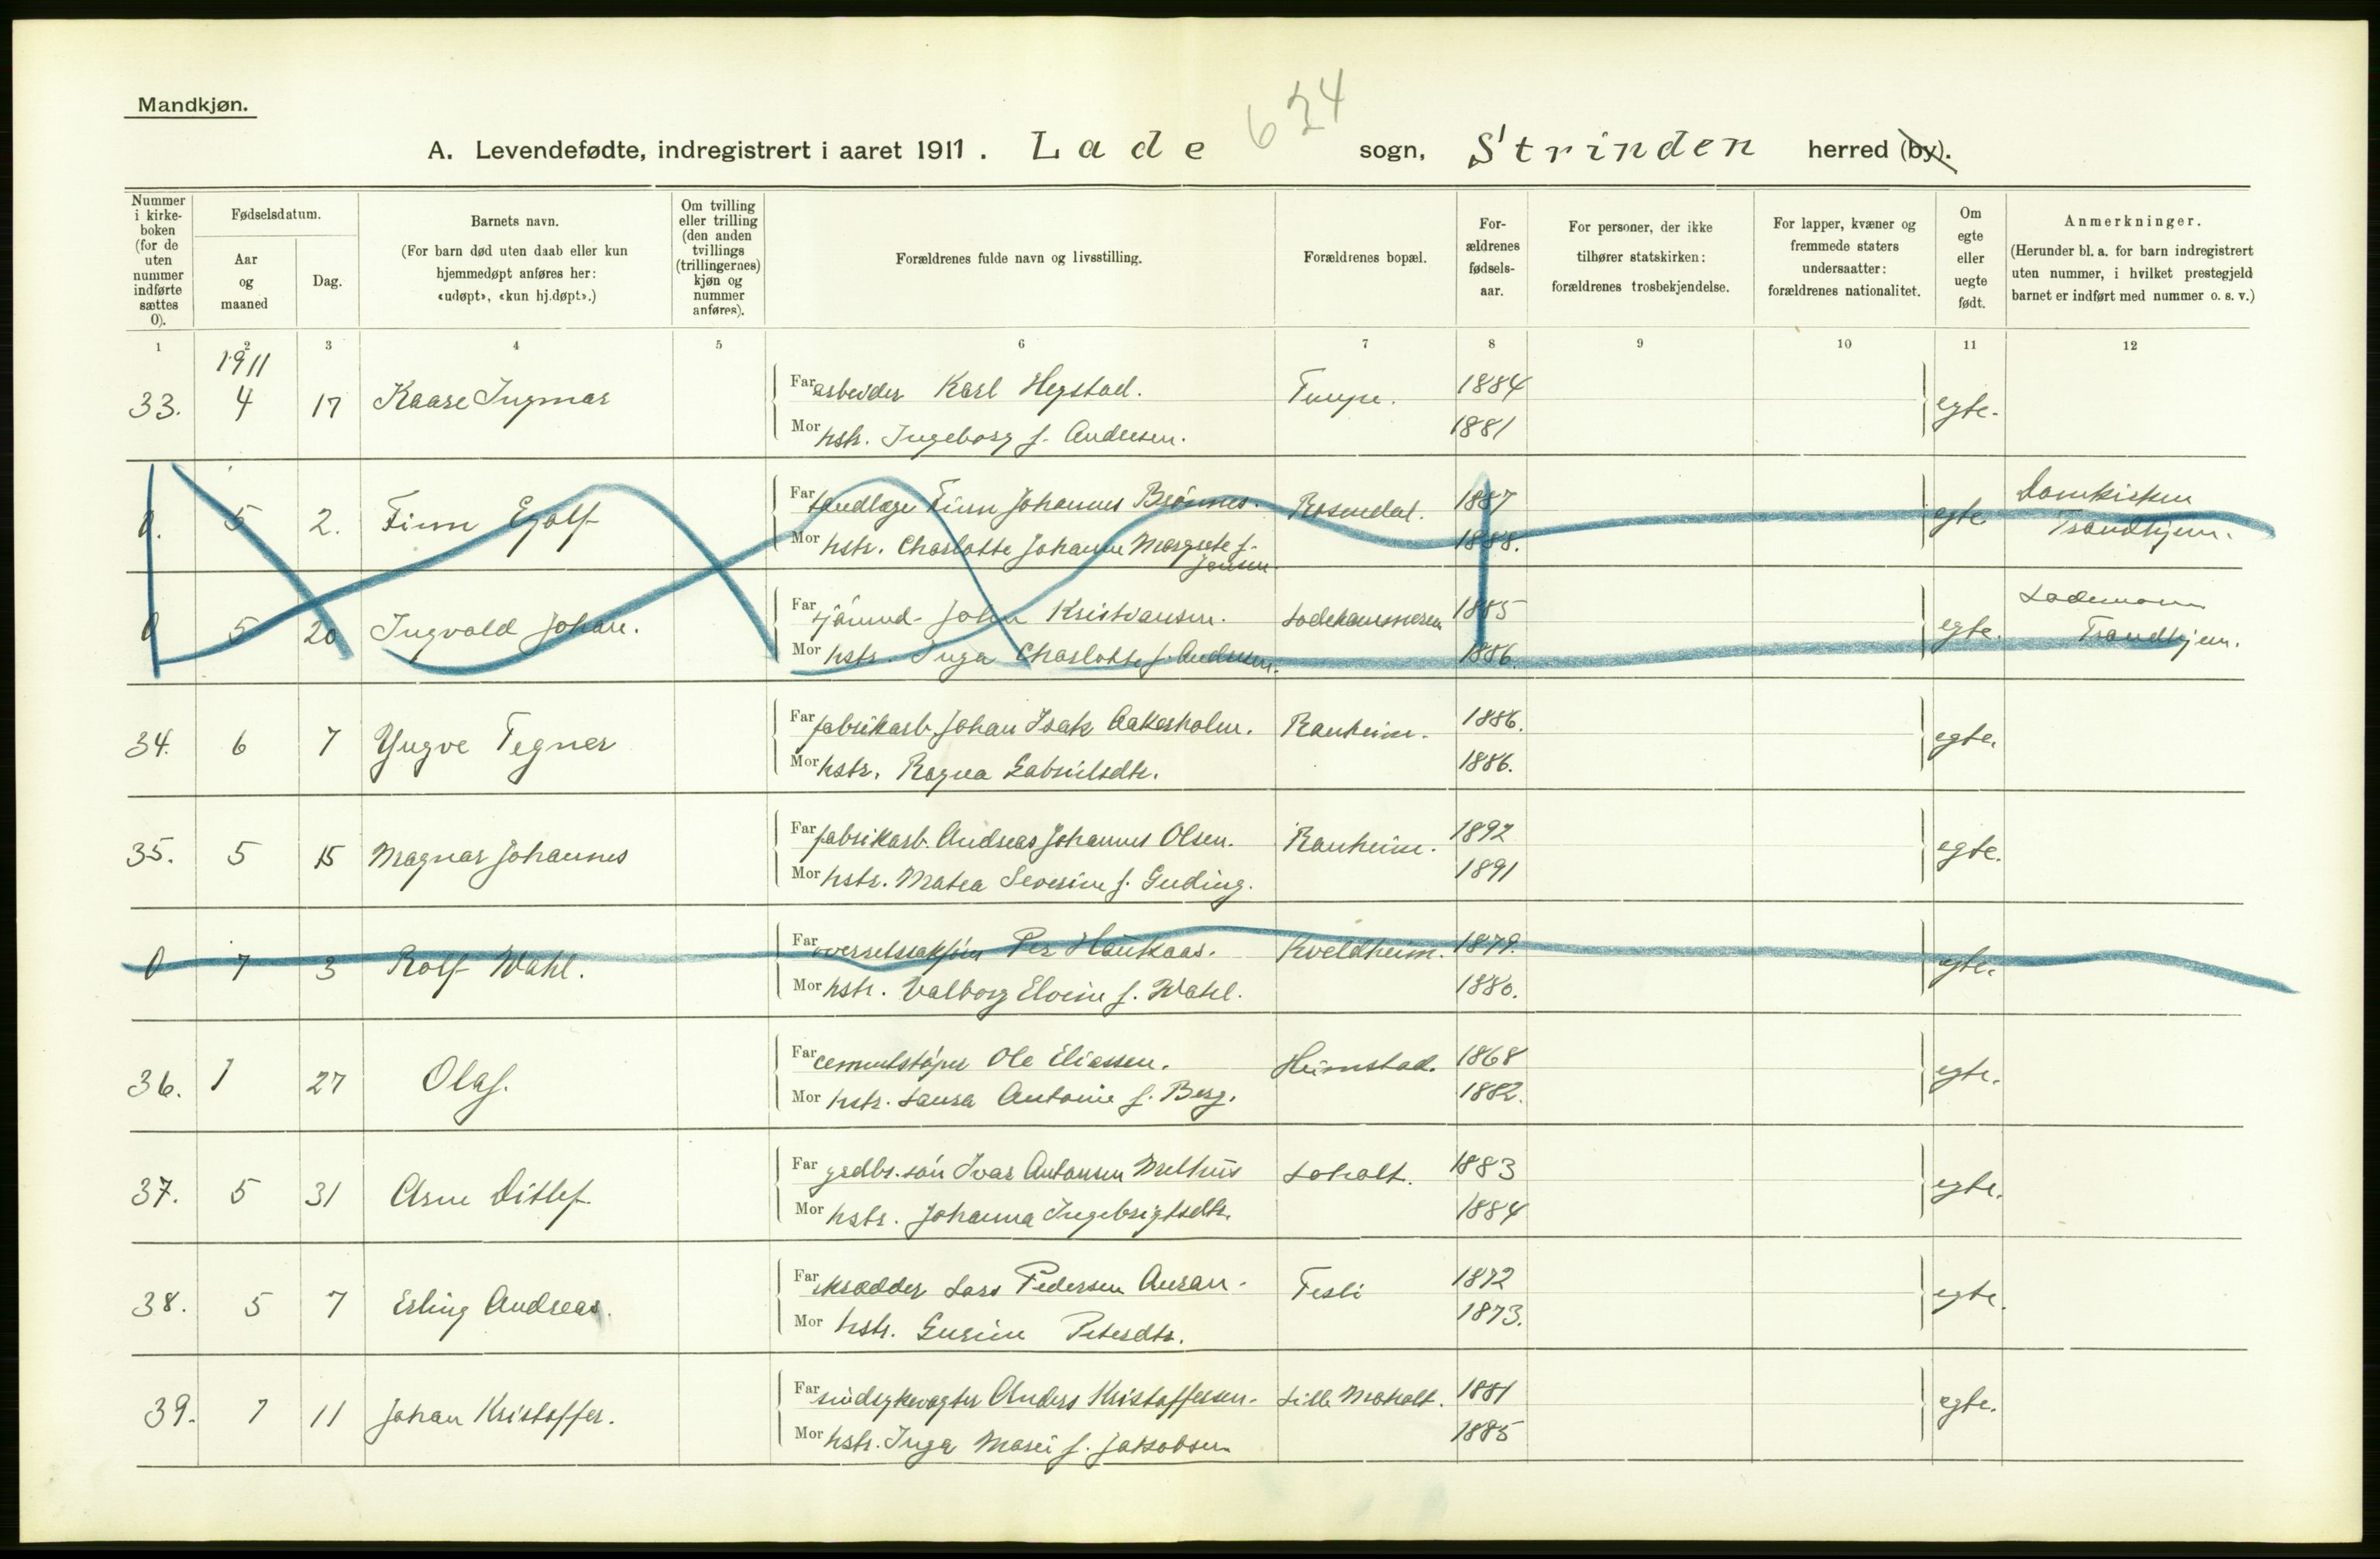 Mandkjøn.
624
A. Levendefødte, indregistrert i aaret 1911. Lade sogn, Strinden herred (by).
Nummer i kirke-boken (for de uten nummer indførte sættes 0).
Fødselsdatum.
Aar og maaned
Dag.
Barnets navn.
(For barn død uten daab eller kun hjemmedøpt anføres her: «udøpt», «kun hj.døpt».)
Om tvilling eller trilling (den anden tvillings (trillingernes) kjøn og nummer anføres).
Forældrenes fulde navn og livsstilling.
Forældrenes bopæl.
For-ældrenes fødsels-aar.
For personer, der ikke tilhører statskirken: forældrenes trosbekjendelse.
For lapper, kvæner og fremmede staters undersaatter: forældrenes nationalitet.
Om egte eller uegte født.
Anmerkninger.
(Herunder bl. a. for barn indregistrert uten nummer, i hvilket prestegjeld barnet er indført med nummer o. s. v.)
1 2 3 4 5 6 7 8 9 10 11 12
1911
33. 4 17 Kaare Ingmar Far arbeider Karl Hegstad. 1884 egte.
Mor hstr. Ingeborg f. Andersen. 1881
0. 5 2. Finn Ejolf Far tandlæge Finn Johannes Brönnes. Rosendal. 1887 egte Domkirken Trondhjem.
Mor hstr. Charlotte Johanne Margrete f. Jensen 1888.
0 5 20 Ingvald Johan. Far sjömand John Kristiansen. Ladehammeren 1885 egte. Lademoen Trondhjem.
Mor hstr. Inga Charlotte f. Andersen. 1886.
34. 6 7 Yngve Tegner Far fabrikarb. Johan Isak Aakerholm. Ranheim. 1886. egte.
Mor hstr. Ragna Gabrielsdtr. 1886.
35. 5 15 Magnar Johannes Far fabrikarb. Andreas Johannes Olsen. Ranheim. 1892 egte.
Mor hstr. Matea Severine f. Guding. 1891
0 7 3 Rolf Wahl. Far overretssakfører Per Haukaas. Kveldheim. 1879. egte.
Mor hstr. Valborg Elvine f. Wahl. 1880.
36. 1 27 Olaf. Far cementstøper Ole Eliassen. Heimstad. 1868 egte.
Mor hstr. Laura Antonie f. Berg. 1882.
37. 5 31 Arne Ditlef Far grdbr. sön Ivar Antonsen Melhus Loholt. 1883 egte.
Mor hstr. Johanna Ingebrigtsdtr. 1884
38. 5 7 Erling Andreas. Far skrædder Lars Pedersen Auran. Tesli 1872 egte.
Mor hstr. Gurine Petersdtr. 1873.
39. 7 11 Johan Kristoffer. Far sindsykevogter Anders Kristoffersen. Lille Moholt. 1881 egte.
Mor hstr. Inga Marie f. Jakobsen 1885